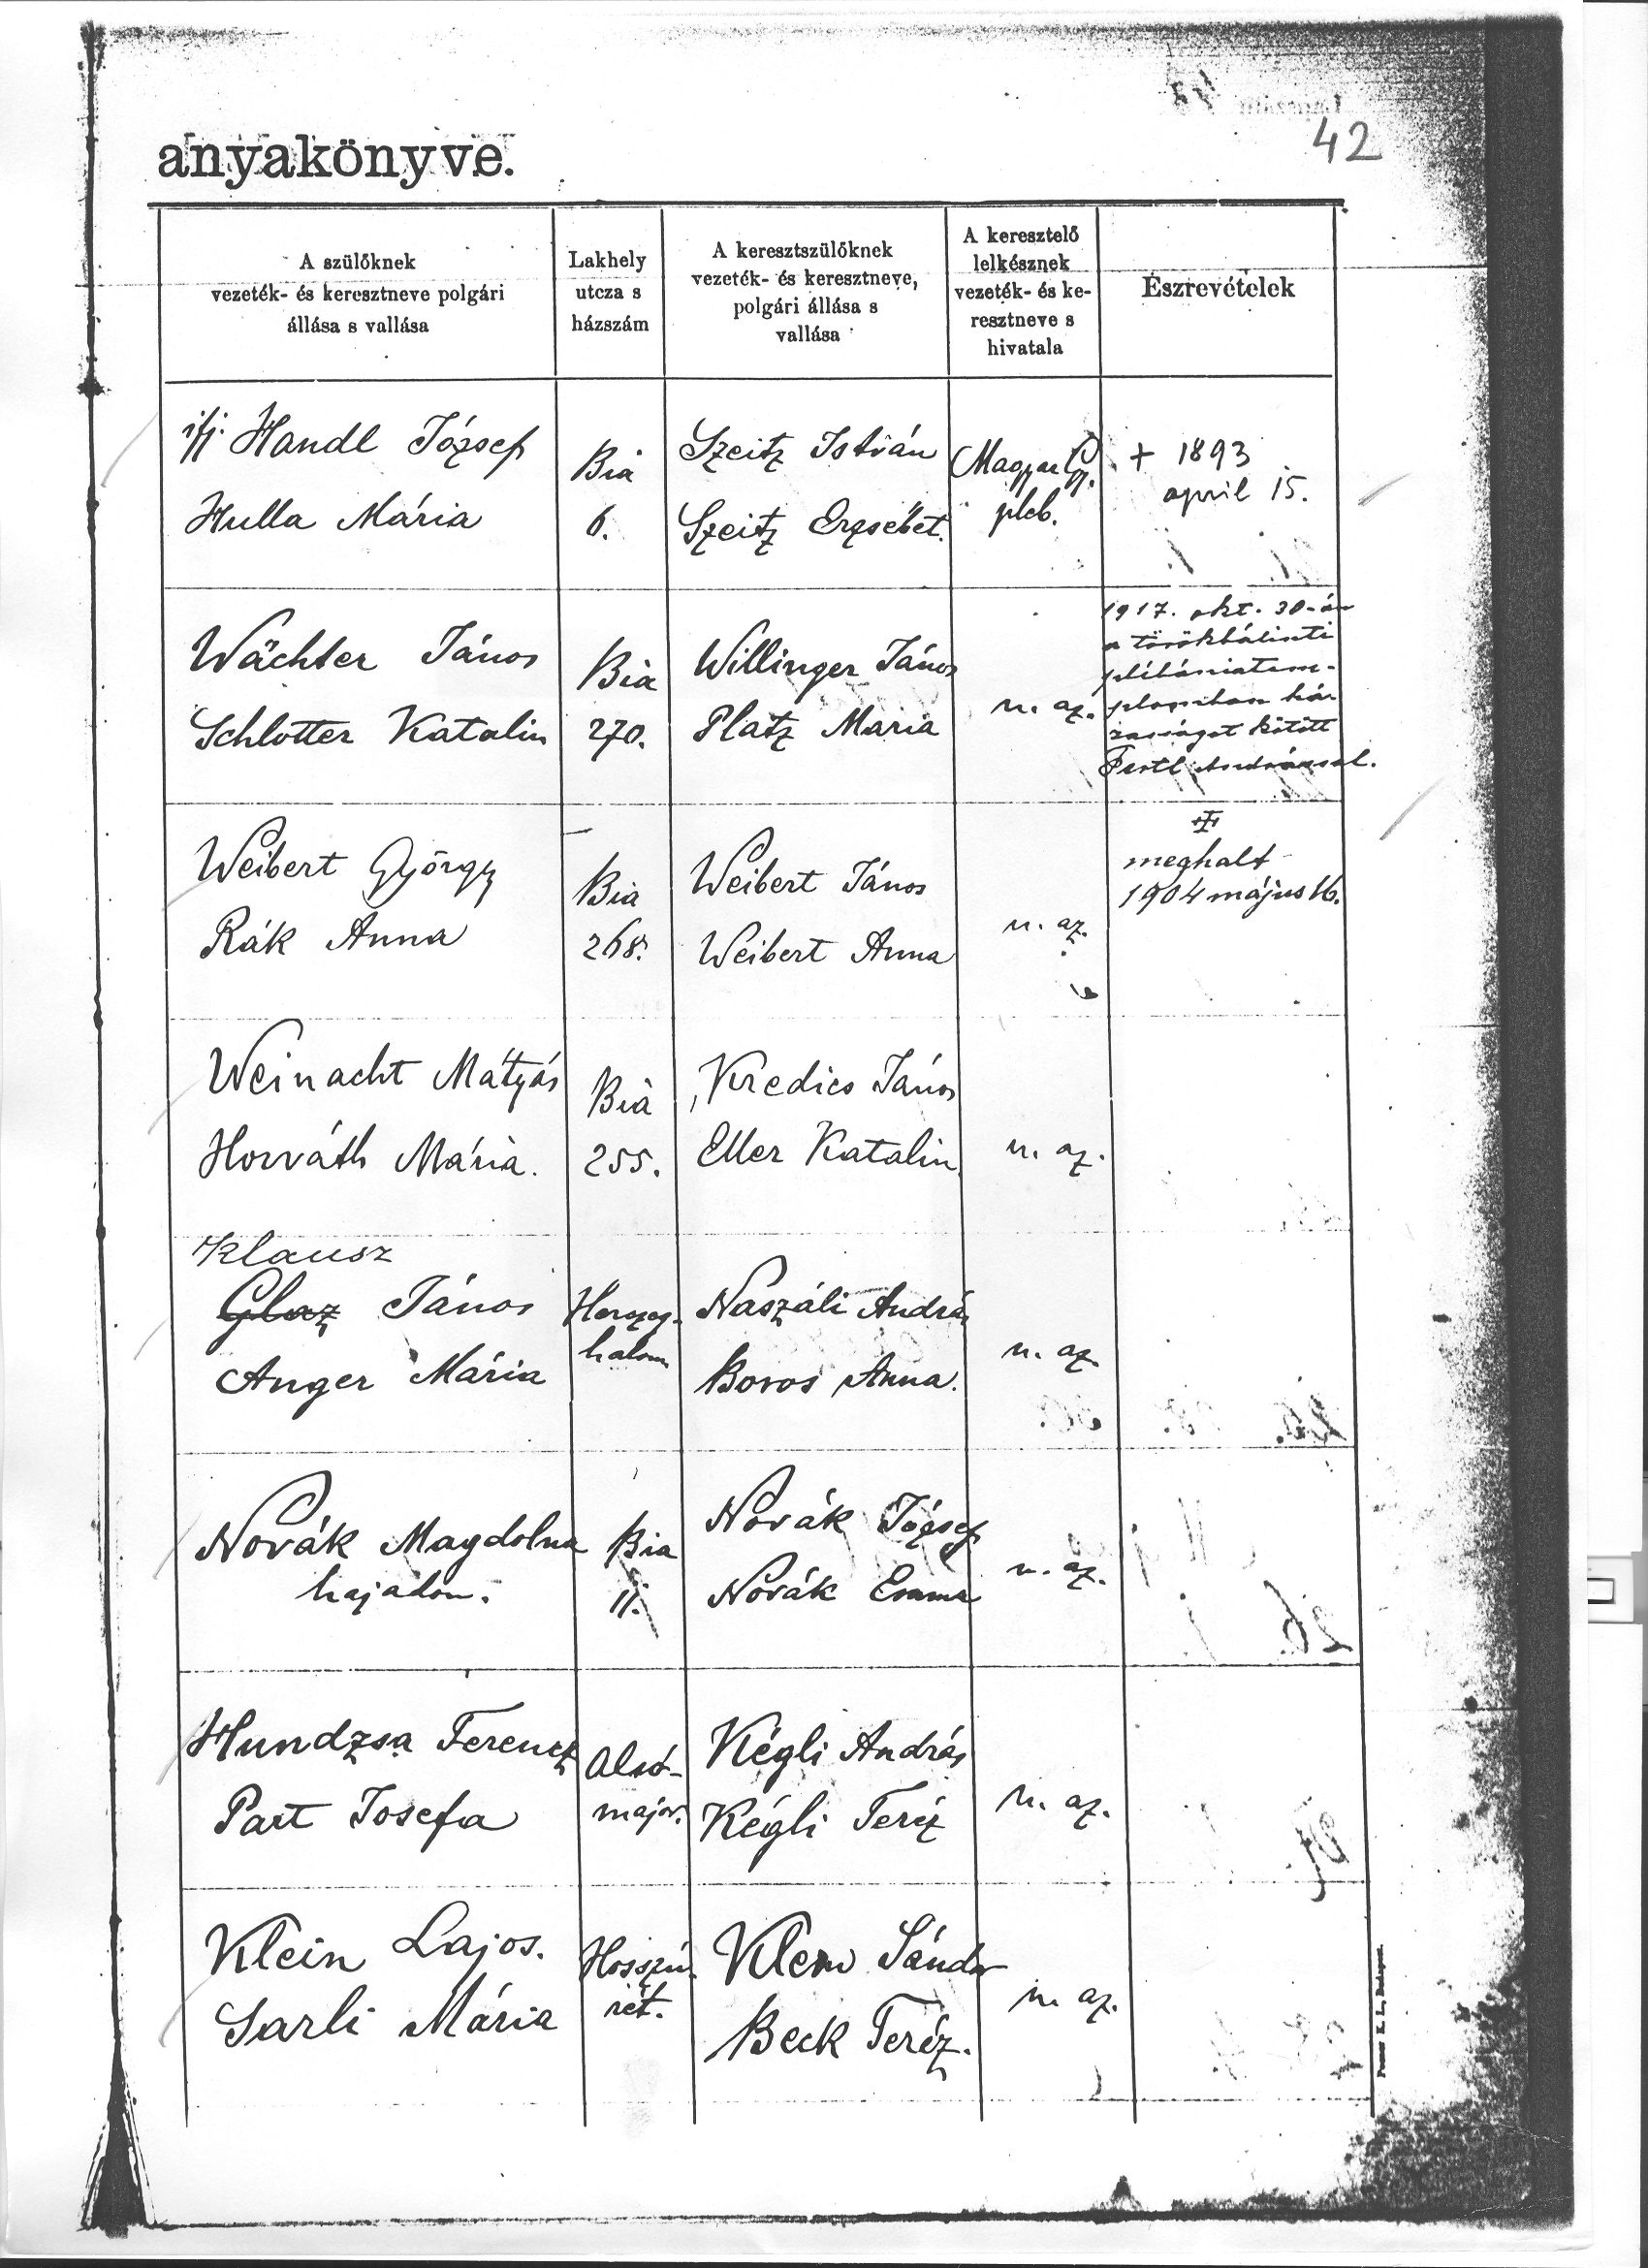 42
anyakönyve.
A szülőknek
vezeték- és keresztneve polgári
állása s vallása
Lakhely
utcza s
házszám
A keresztszülőknek
vezeték- és keresztneve,
polgári állása s
vallása
A keresztelő
lelkésznek
vezeték- és ke-
resztneve s
hivatala
Észrevételek
ifj. Handl József
Hulla Mária
Bia
6.
Szeitz István
Szeitz Erzsébet.
Magyar
pleb.
+ 1893
april 15.
Wächter János
Schlotter Katalin
Bia
270.
Willinger János
Platz Maria
u. az.
1917. okt. 30-án
a törökbálinti
plébániatem-
plomban há-
zasságot kötött
Fertl Andrással.
Weibert György
Rák Anna
Bia
268.
Weibert János
Weibert Anna
u. az.
meghalt
1904 május 16.
Weinacht Mátyás
Horváth Mária.
Bia
255.
Kredics János
Eller Katalin
u. az.
Klausz
Glaz János
Anger Mária
Herczeg-
halom
Naszáli András
Boros Anna.
u. az.
Novák Magdolna
hajadon.
Bia
11.
Novák József
Novák Emma
u. az.
Hundzsa Ferencz
Part Josefa
Alsó-
major.
Kégli András
Kégli Teréz
u. az.
Klein Lajos.
Sarli Mária
Hosszú-
rét.
Klein Sándor
Beck Teréz.
u. az.